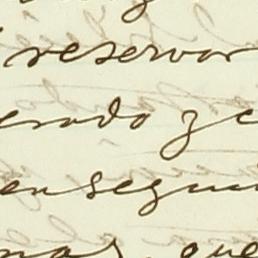 reservar
erado y c
en segui
mas que